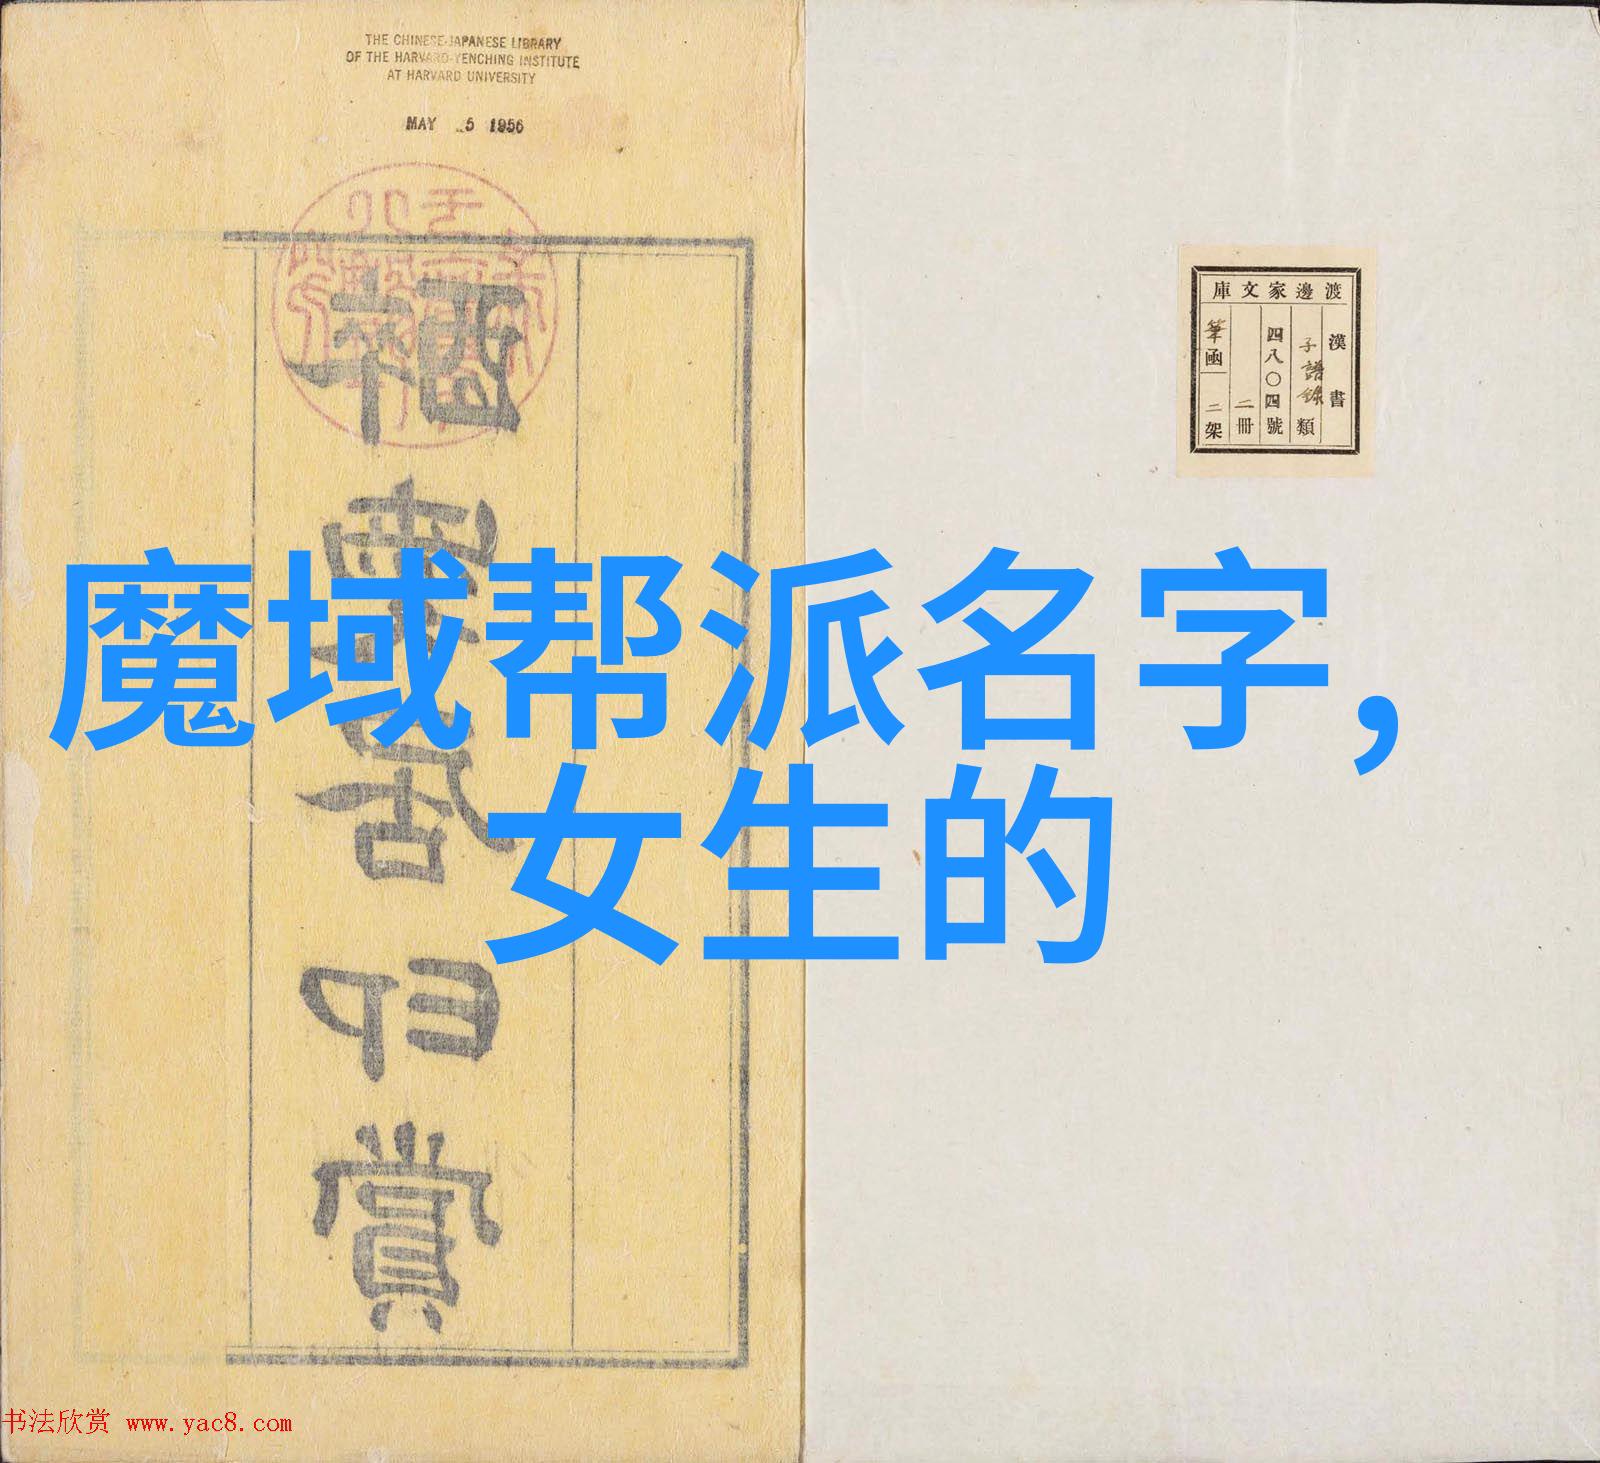 THE CHINESE-JAPANESE LIBRARY
OF THE HARVARD-YENCHING INSTITUTE
AT HARVARD UNIVERSITY
MAY 5 1956
渡邊家文庫
漢書
子譜錄類
四八〇四號
二冊
筆函二架
魔域帮派名字,
女生的
书法欣赏 www.yac8.com